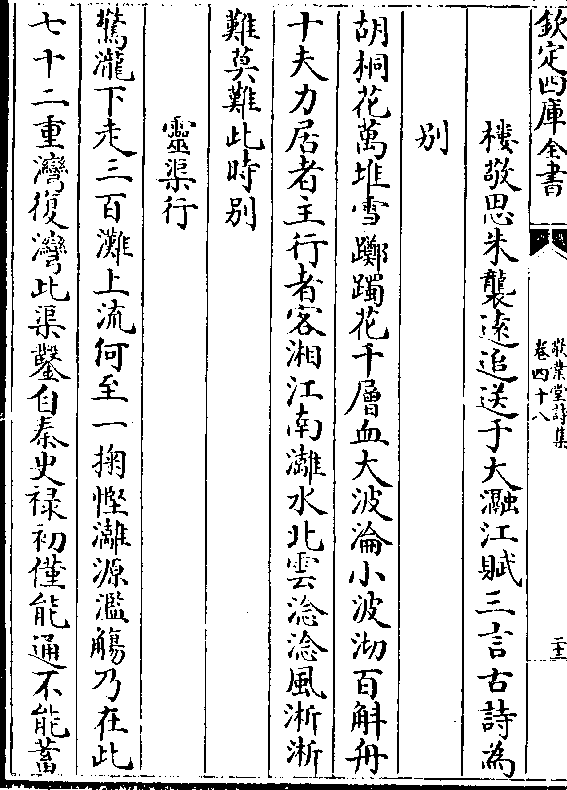 欽定四庫全書
敬業堂詩集
卷四十八
樓敬思朱襲遠追送于大瀜江賦三言古詩為
别
胡桐花萬堆雪躑躅花千層血大波淪小波沏百斛舟
十夫力居者主行者客湘江南灕水北雲淰淰風淅淅
難莫難此時别
靈渠行
驚瀧下走三百灘上流何至一掬慳灕源濫觴乃在此
七十二重灣復灣此渠鑿自秦史禄初僅能通不能蓄